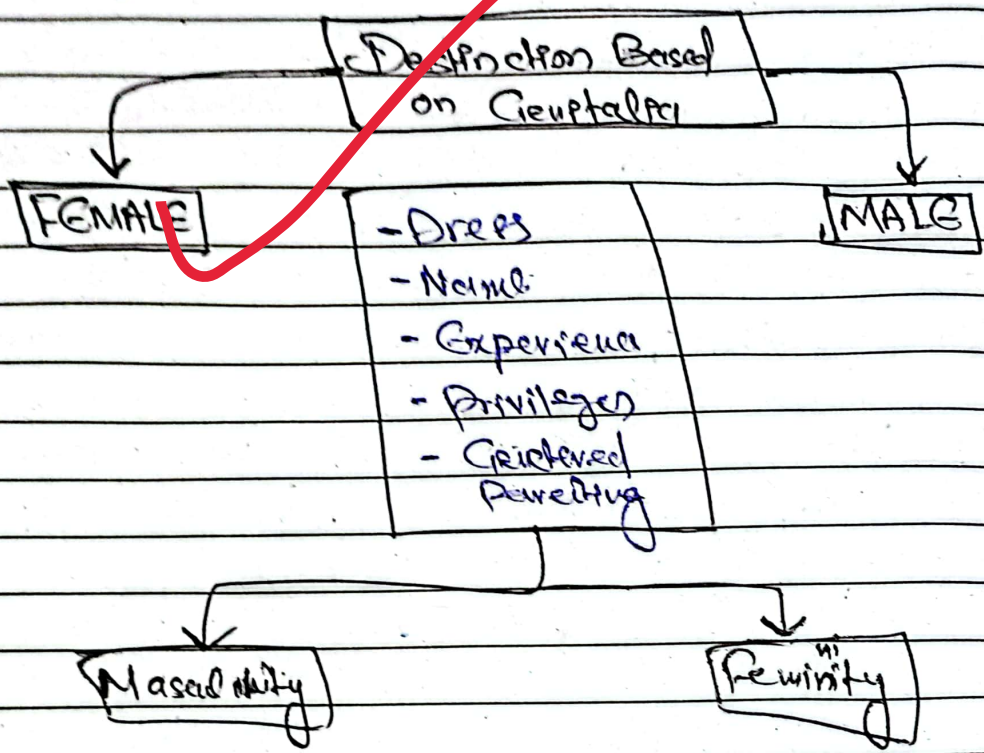 Destinction Based
on Genitalia
FEMALE
MALE
- Dress
- Name
- Experience
- Privileges
-
Masculinity
Feminity
ni